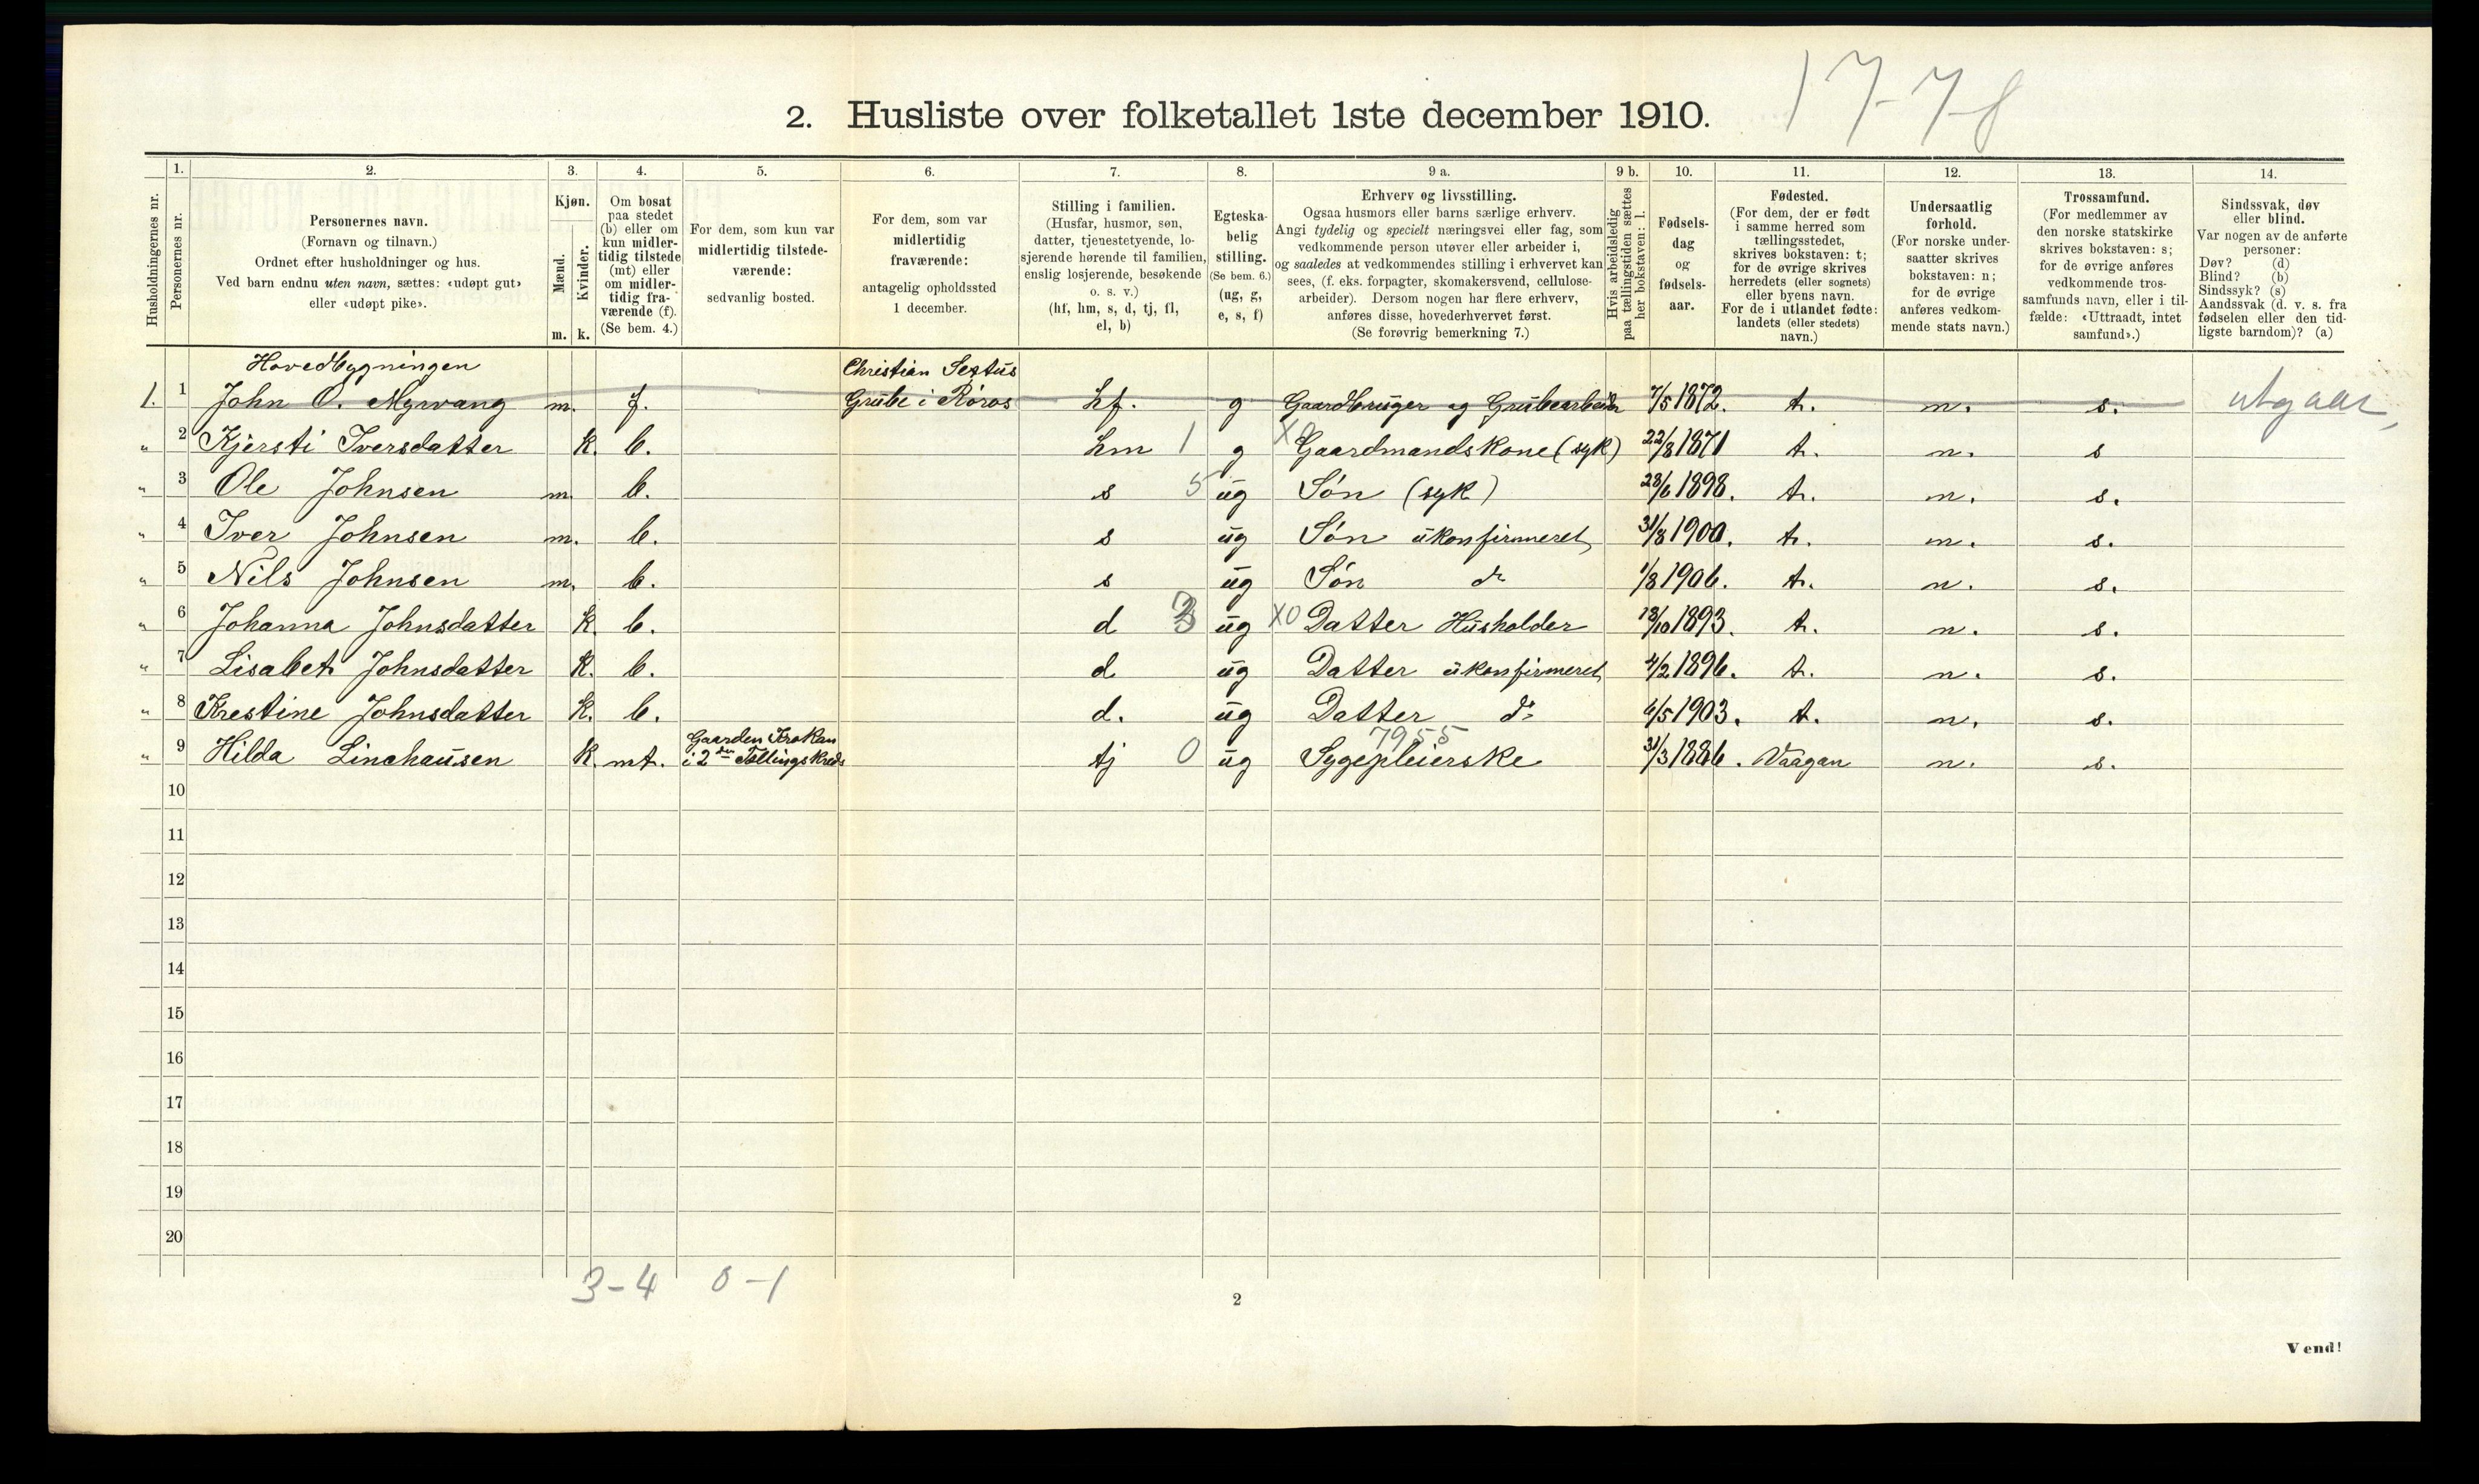 17-7-8
2. Husliste over folketallet 1ste december 1910.
Husholdningernes nr.
1. Personernes nr.
2. Personernes navn.
(Fornavn og tilnavn.)
Ordnet efter husholdninger og hus.
Ved barn endnu uten navn, sættes: «udøpt gut»
eller «udøpt pike».
3. Kjøn.
Mænd. Kvinder.
m. k.
4. Om bosat
paa stedet
(b) eller om
kun midler-
tidig tilstede
(mt) eller
om midler-
tidig fra-
værende (f).
(Se bem. 4.)
5. For dem, som kun var
midlertidig tilstede-
værende:
sedvanlig bosted.
6. For dem, som var
midlertidig
fraværende:
antagelig opholdssted
1 december.
7. Stilling i familien.
(Husfar, husmor, søn,
datter, tjenestetyende, lo-
sjerende hørende til familien,
enslig losjerende, besøkende
o. s. v.)
(hf, hm, s, d, tj, fl,
el, b)
8. Egteska-
belig
stilling.
(Se bem. 6.)
(ug, g,
e, s, f)
9 a. Erhverv og livsstilling.
Ogsaa husmors eller barns særlige erhverv.
Angi tydelig og specielt næringsvei eller fag, som
vedkommende person utøver eller arbeider i,
og saaledes at vedkommendes stilling i erhvervet kan
sees, (f. eks. forpagter, skomakersvend, cellulose-
arbeider). Dersom nogen har flere erhverv,
anføres disse, hovederhvervet først.
(Se forøvrig bemerkning 7.)
9 b. Hvis arbeidsledig
paa tællingstiden sættes
her bokstaven: l.
10. Fødsels-
dag
og
fødsels-
aar.
11. Fødested.
(For dem, der er født
i samme herred som
tællingsstedet,
skrives bokstaven: t;
for de øvrige skrives
herredets (eller sognets)
eller byens navn.
For de i utlandet fødte:
landets (eller stedets)
navn.)
12. Undersaatlig
forhold.
(For norske under-
saatter skrives
bokstaven: n;
for de øvrige
anføres vedkom-
mende stats navn.)
13. Trossamfund.
(For medlemmer av
den norske statskirke
skrives bokstaven: s;
for de øvrige anføres
vedkommende tros-
samfunds navn, eller i til-
fælde: «Uttraadt, intet
samfund».)
14. Sindssvak, døv
eller blind.
Var nogen av de anførte
personer:
Døv? (d)
Blind? (b)
Sindssyk? (s)
Aandssvak (d. v. s. fra
fødselen eller den tid-
ligste barndom)? (a)
Hovedbygningen Christian Sextus
1. 1 John O. Myrvang m. f. Grube i Röros hf. g Gaardbruger og Grubearbeider 7/5 1872. t. n. s. utgaar
" 2 Kjersti Iversdatter k. b. hm 1 g X0 Gaardmandskone (syk) 22/8 1871 t. n. s
" 3 Ole Johnsen m. b. s 5 ug Sön (syk) 28/6 1898. t. n. s.
" 4 Iver Johnsen m. b. s ug Sön ukonfirmeret 31/8 1900. t. n. s.
" 5 Nils Johnsen m. b. s ug Sön do 1/8 1906. t. n. s.
" 6 Johanna Johnsdatter k. b. d ug X0 Datter Husholder 18/10 1893. t. n. s.
" 7 Lisabet Johnsdatter k. b. d ug Datter ukonfirmeret 4/2 1896. t. n. s.
" 8 Krestine Johnsdatter k. b. d. ug Datter do 6/5 1903. t. n. s.
Gaarden Krokan 7955
" 9 Hilda Linehausen k. mt. i 2den Tællingskreds tj 0 ug Sygepleierske 31/3 1886. Vaagan n. s.
10
11
12
13
14
15
16
17
18
19
20
3-4 0-1
2
Vend!